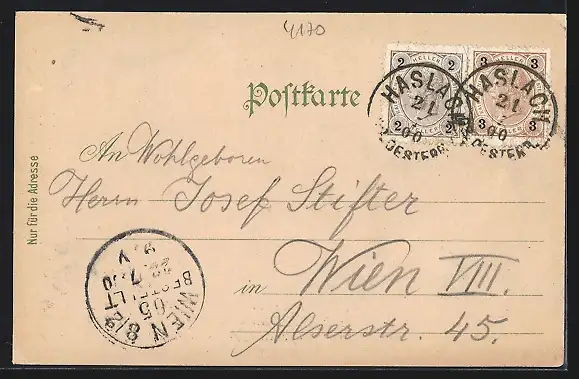 4170
2 HELLER 2
2 2
3 HELLER 3
3 3
HASLACH
21
00
OESTERR.
HASLACH
21
00
OESTERR.
Postkarte
An Wohlgeboren
Herrn Josef Stifter
in Wien VIII.
Alserstr. 45.
Nur für die Adresse
WIEN 8/2
65
BESTELLT
7.30
9.V